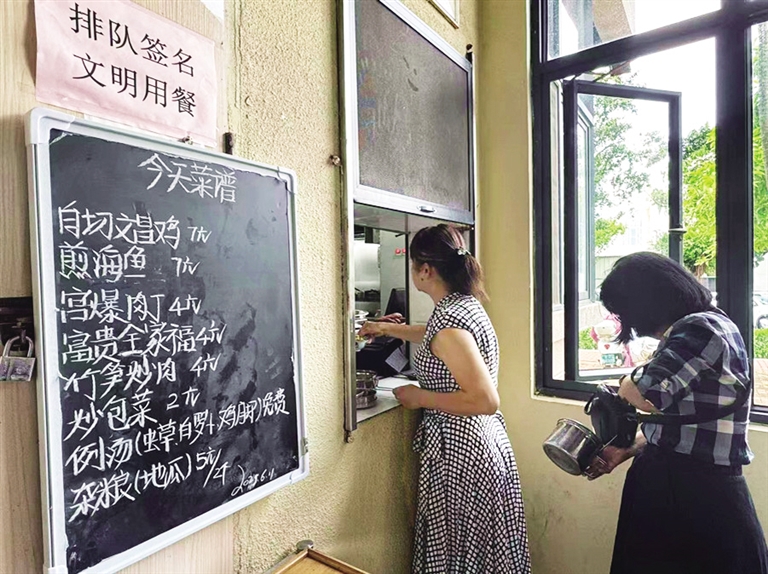 排队签名
文明用餐
今天菜谱
白切文昌鸡 7元
煎海鱼 7元
宫爆肉丁 4元
富贵全家福 4元
竹笋炒肉 4元
炒包菜 2元
例汤(虫草白罗卜,鸡脚)免费
杂粮(地瓜) 5元/斤